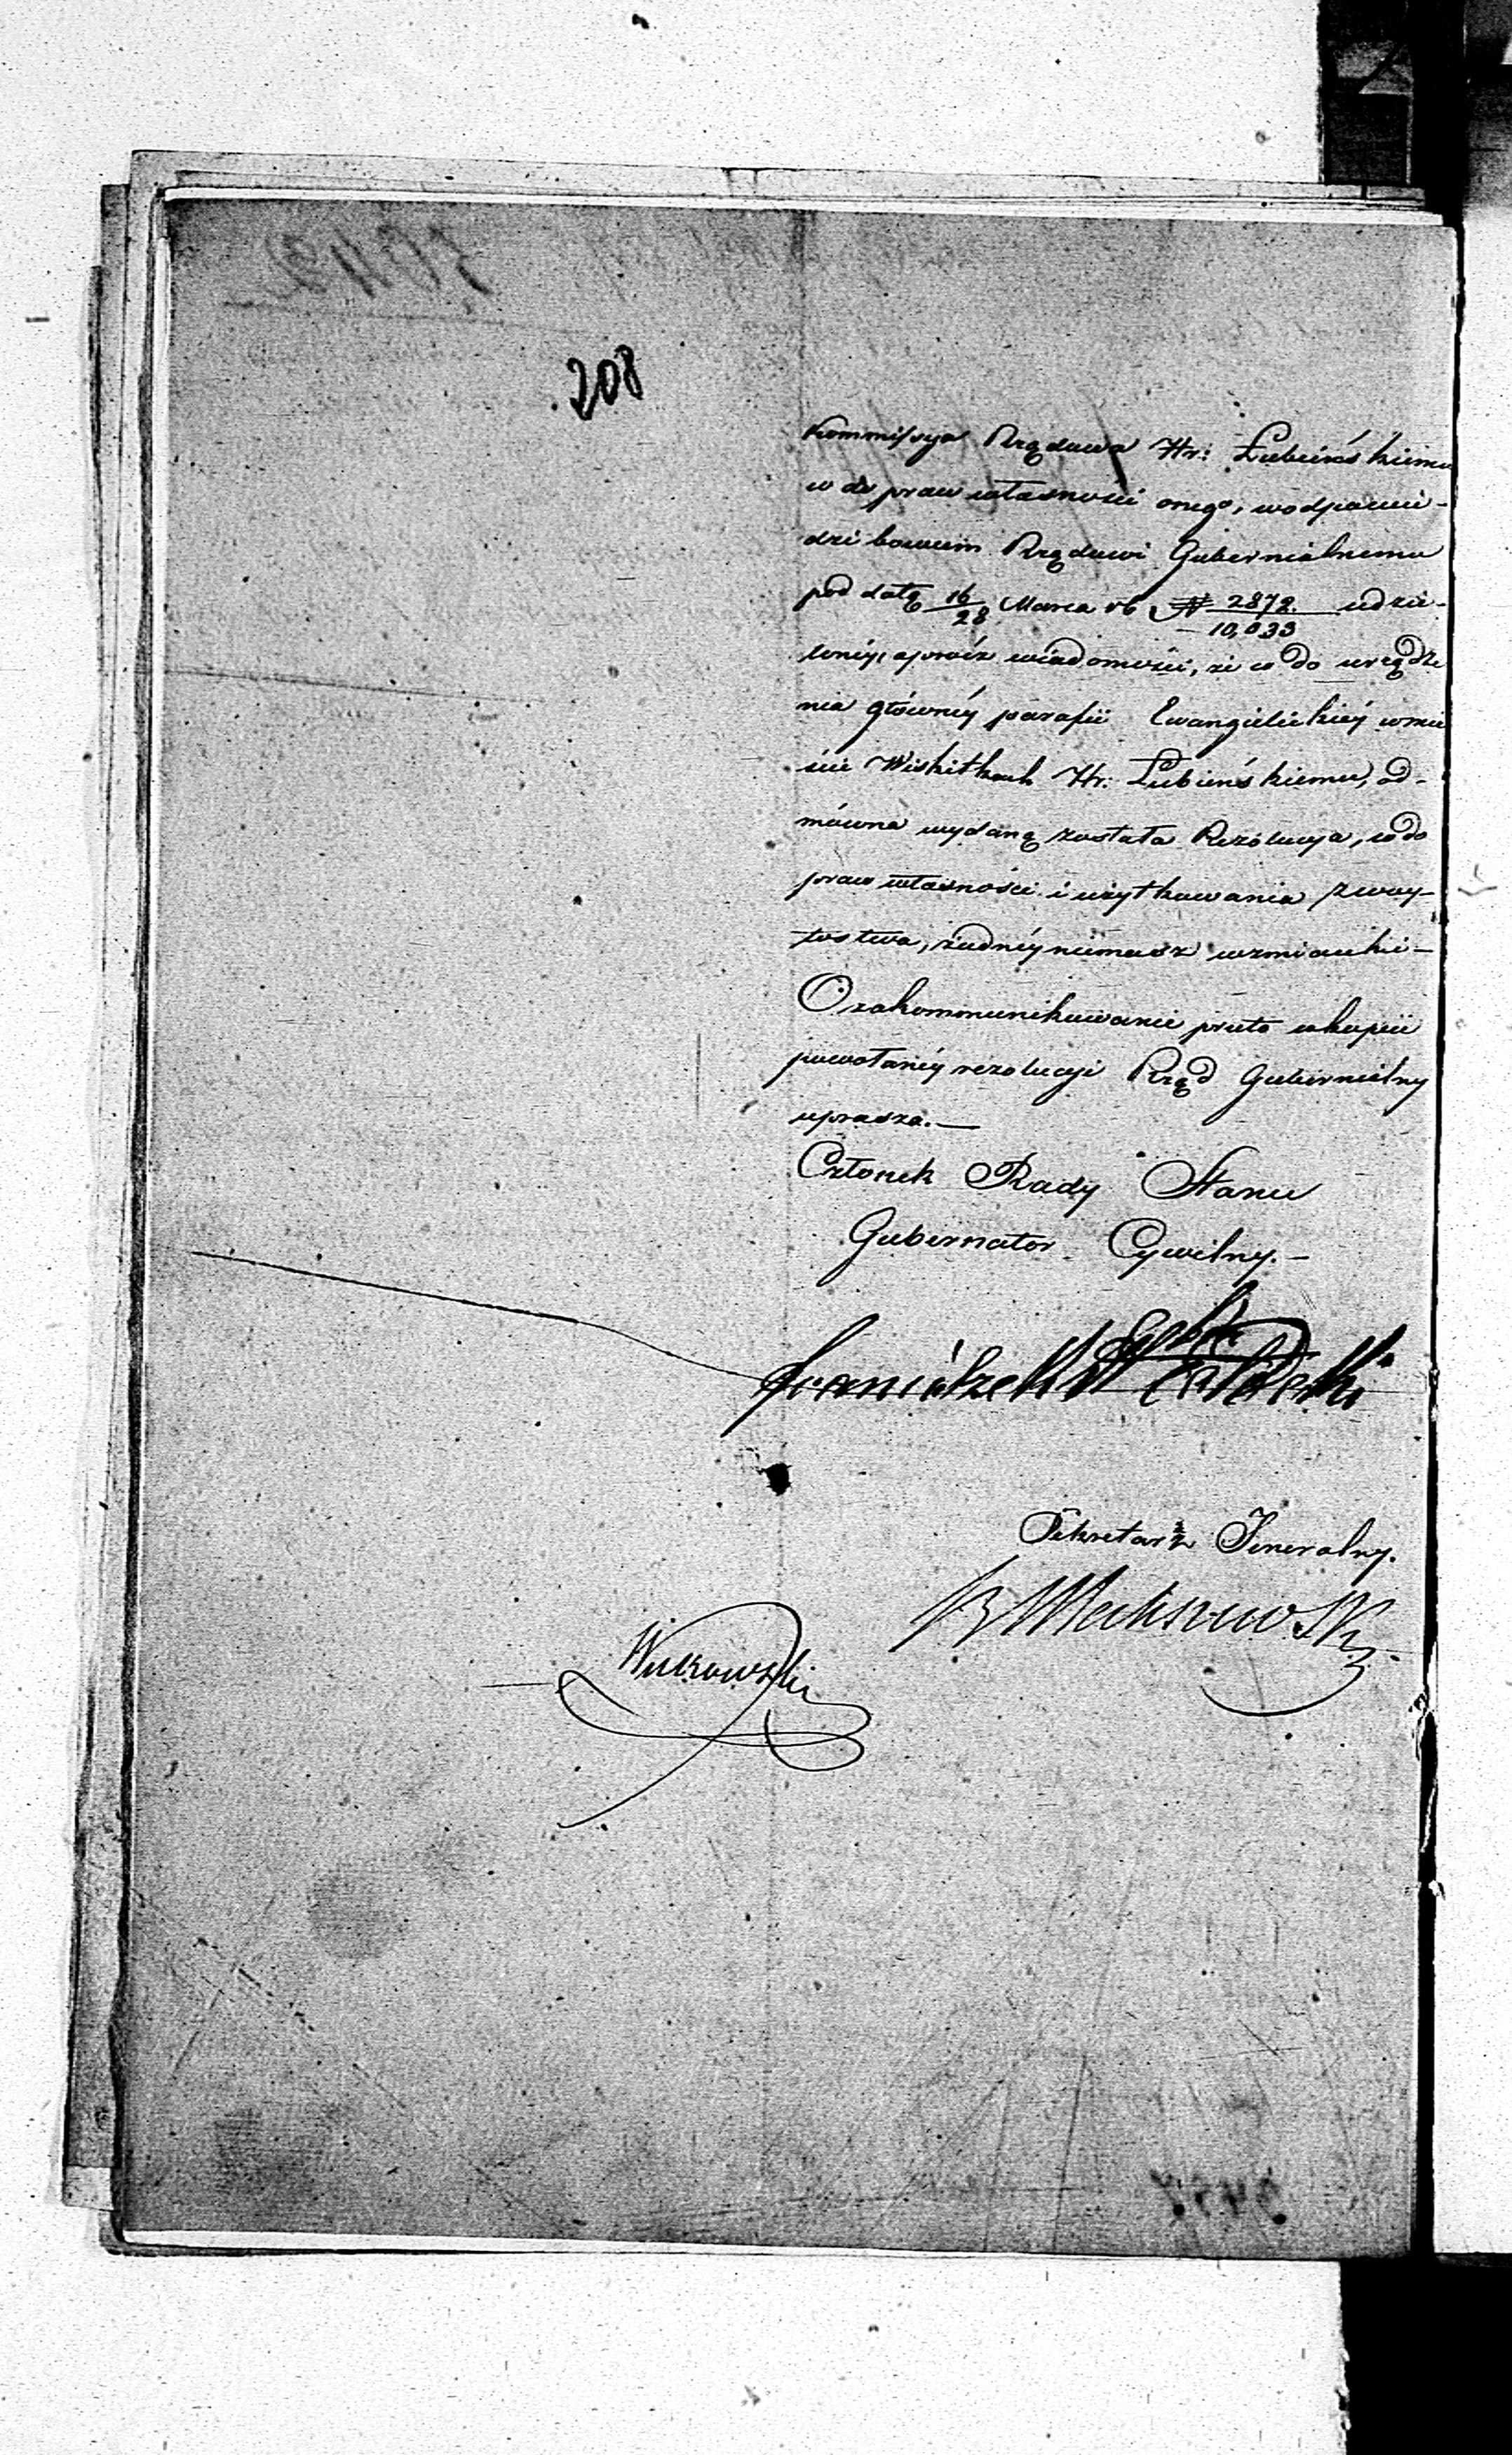 208
Kommissya Rządowa Hr: Łubieńskiemu
co do praw własności onego, w odpowie-
dzi bowiem Rządowi Gubernialnemu
pod datą 16/28 Marca rb № 2872/10,033 udzie-
lonéy, oprócz wiadomości, że co do urządze
nia głównéy parafii Ewangelickiéy w mie
ście Wiskitkach Hr: Łubieńskiemu, od-
mówna wydaną została Rezolucya, co do
praw własności i użytkowania z woy-
tostwa, żadnéy niemasz wzmianki –
O zakommunikowanie przeto w kopii
powołanéy rezolucyi Rząd Gubernialny
uprasza. —
Członek Rady Stanu
Gubernator Cywilny. –
Franciszek
Sekretarz Jeneralny.